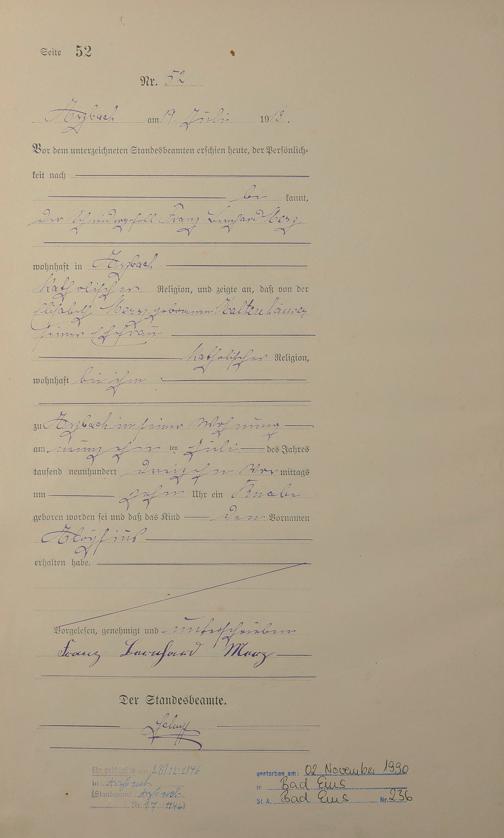 Seite 52
Nr. 52
Arzbach am 19. Juli 1913.
Vor dem unterzeichneten Standesbeamten erschien heute, der Persönlich-
keit nach
be kannt,
der Franz Bernhard Merz
wohnhaft in Arzbach
katholischer Religion, und zeigte an, daß von der
Elisabeth Merz geborenen Kaltenhäuser
seiner Ehefrau
katholischer Religion,
wohnhaft bei ihm
zu Arzbach in seiner Wohnung
am neunzehnten Juli des Jahres
tausend neunhundert dreizehn Vor mittags
um zehn Uhr ein Knabe
geboren worden sei und daß das Kind den Vornamen
Aloysius
erhalten habe.
Vorgelesen, genehmigt und unterschrieben
Franz Bernhard Merz
Der Standesbeamte.
gestorben am: 02 November 1990
in Bad Ems
St. A. Bad Ems Nr. 236